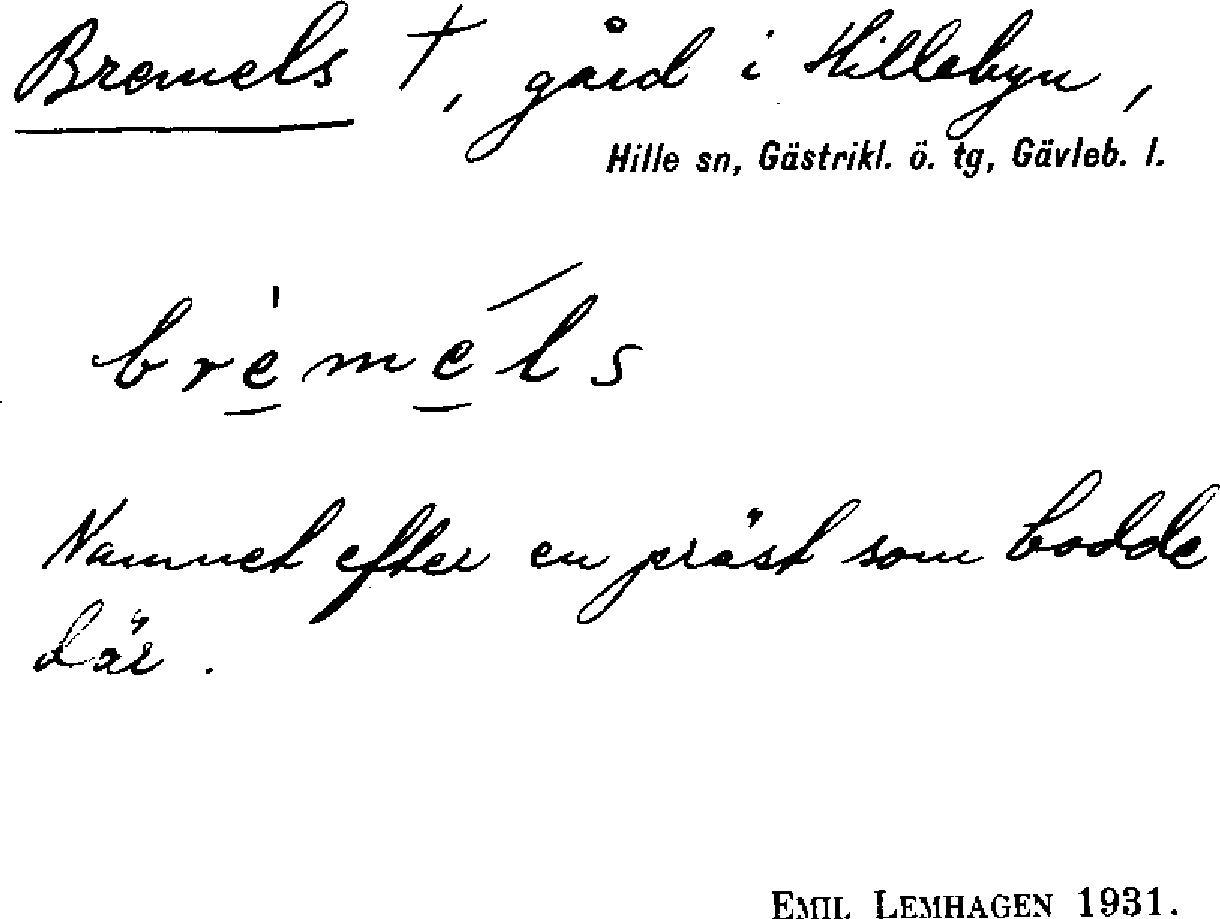 Bremels †, gård i Hillebyn,
Hille sn, Gästrikl. ö. tg, Gävleb. l.
brèméls
Namnet efter en präst som bodde
där.
EMIL LEMHAGEN 1931.